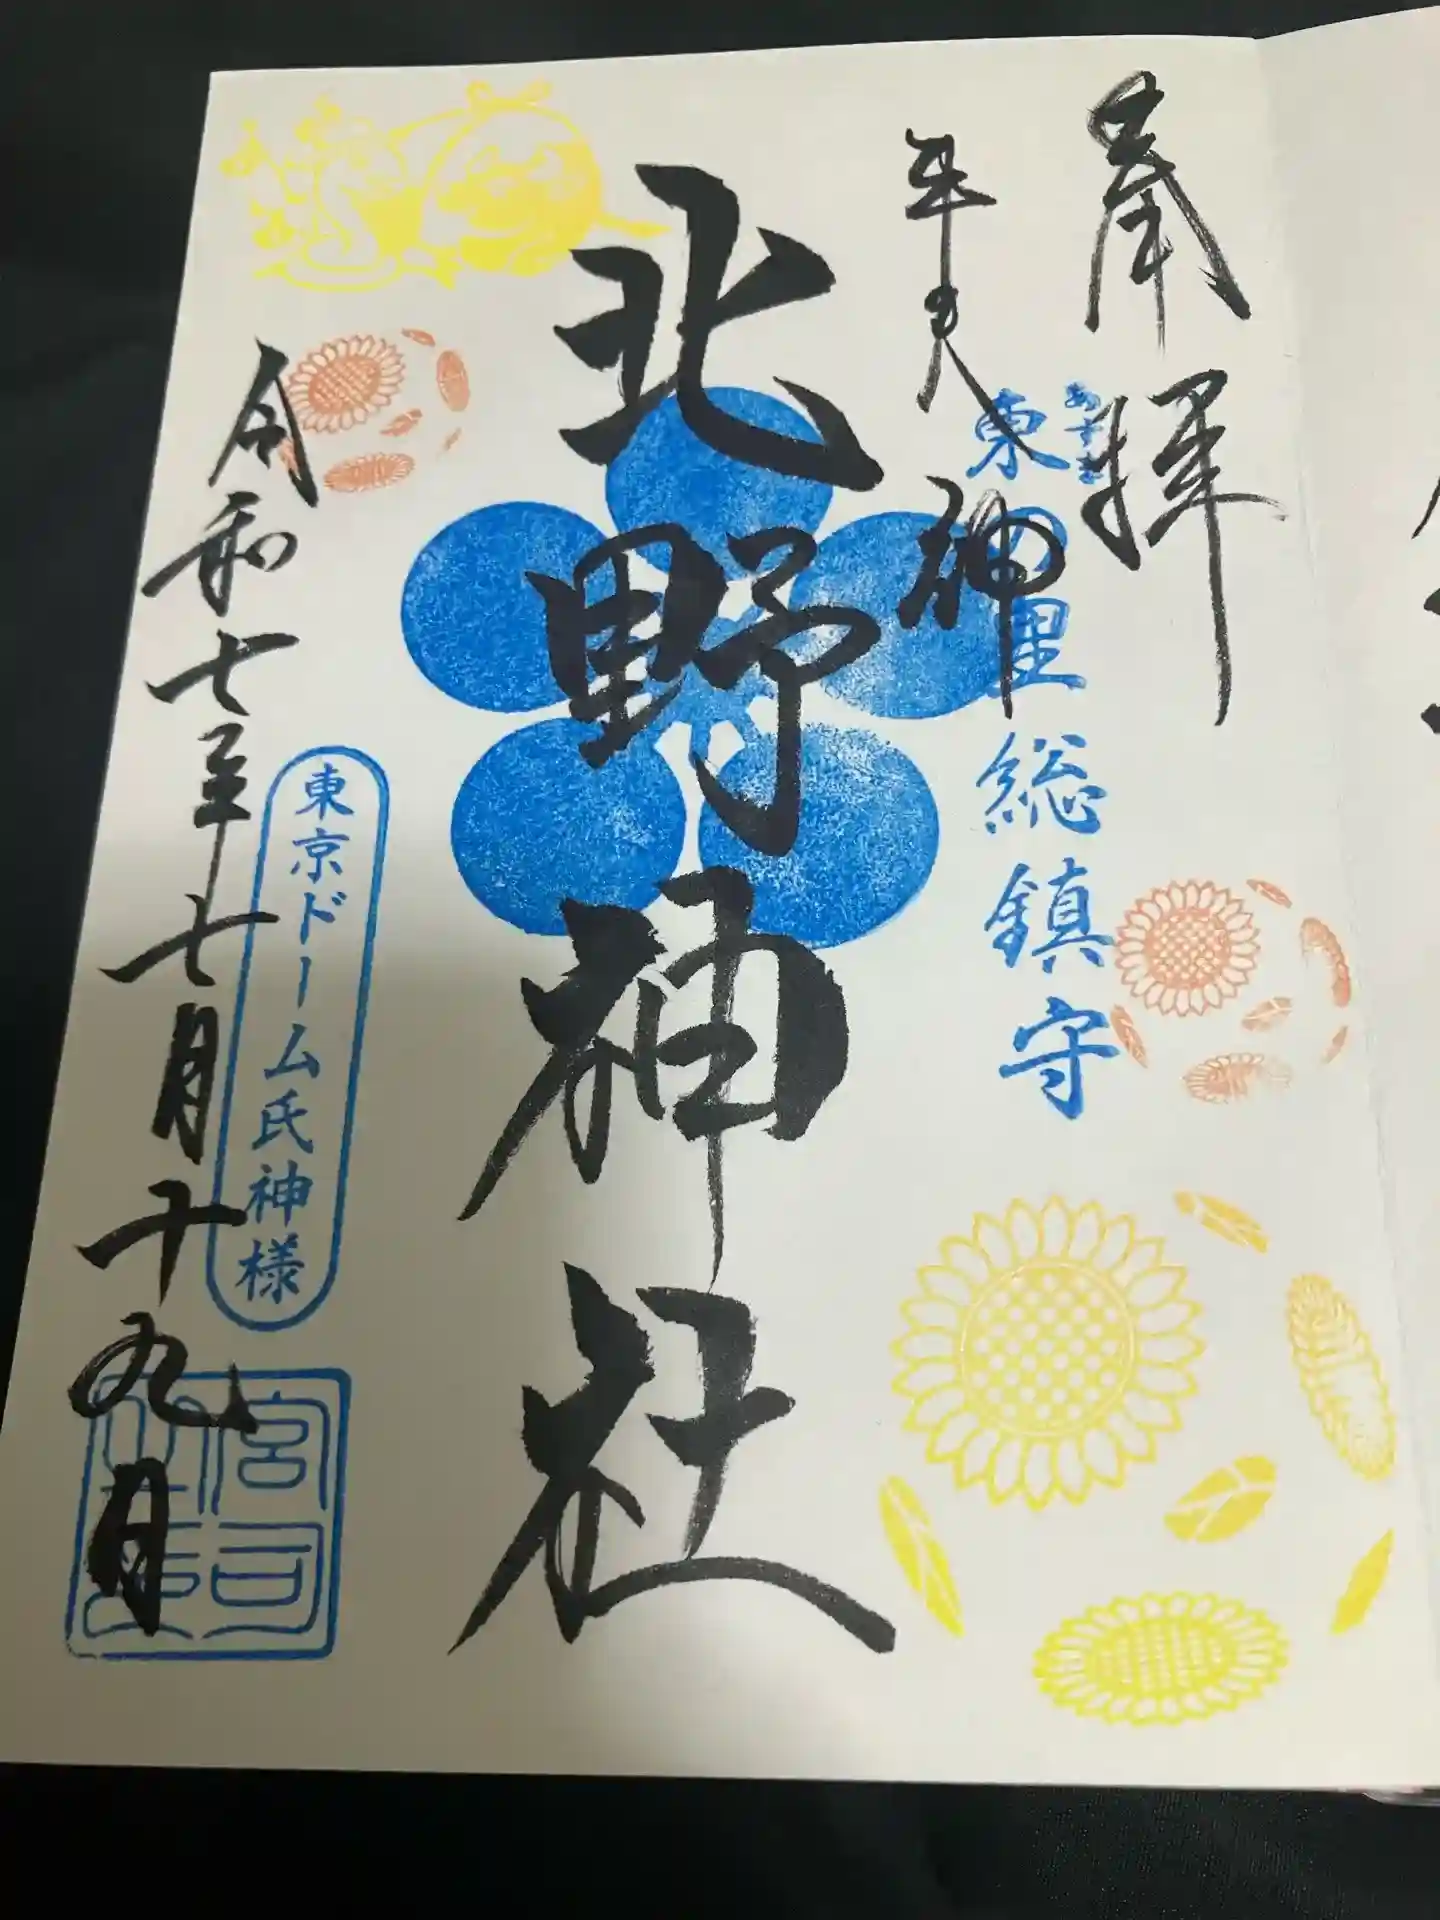 奉拝
あずま
東の里総鎮守
牛天神
北野神社
東京ドーム氏神様
令和七年七月十九日
宮司